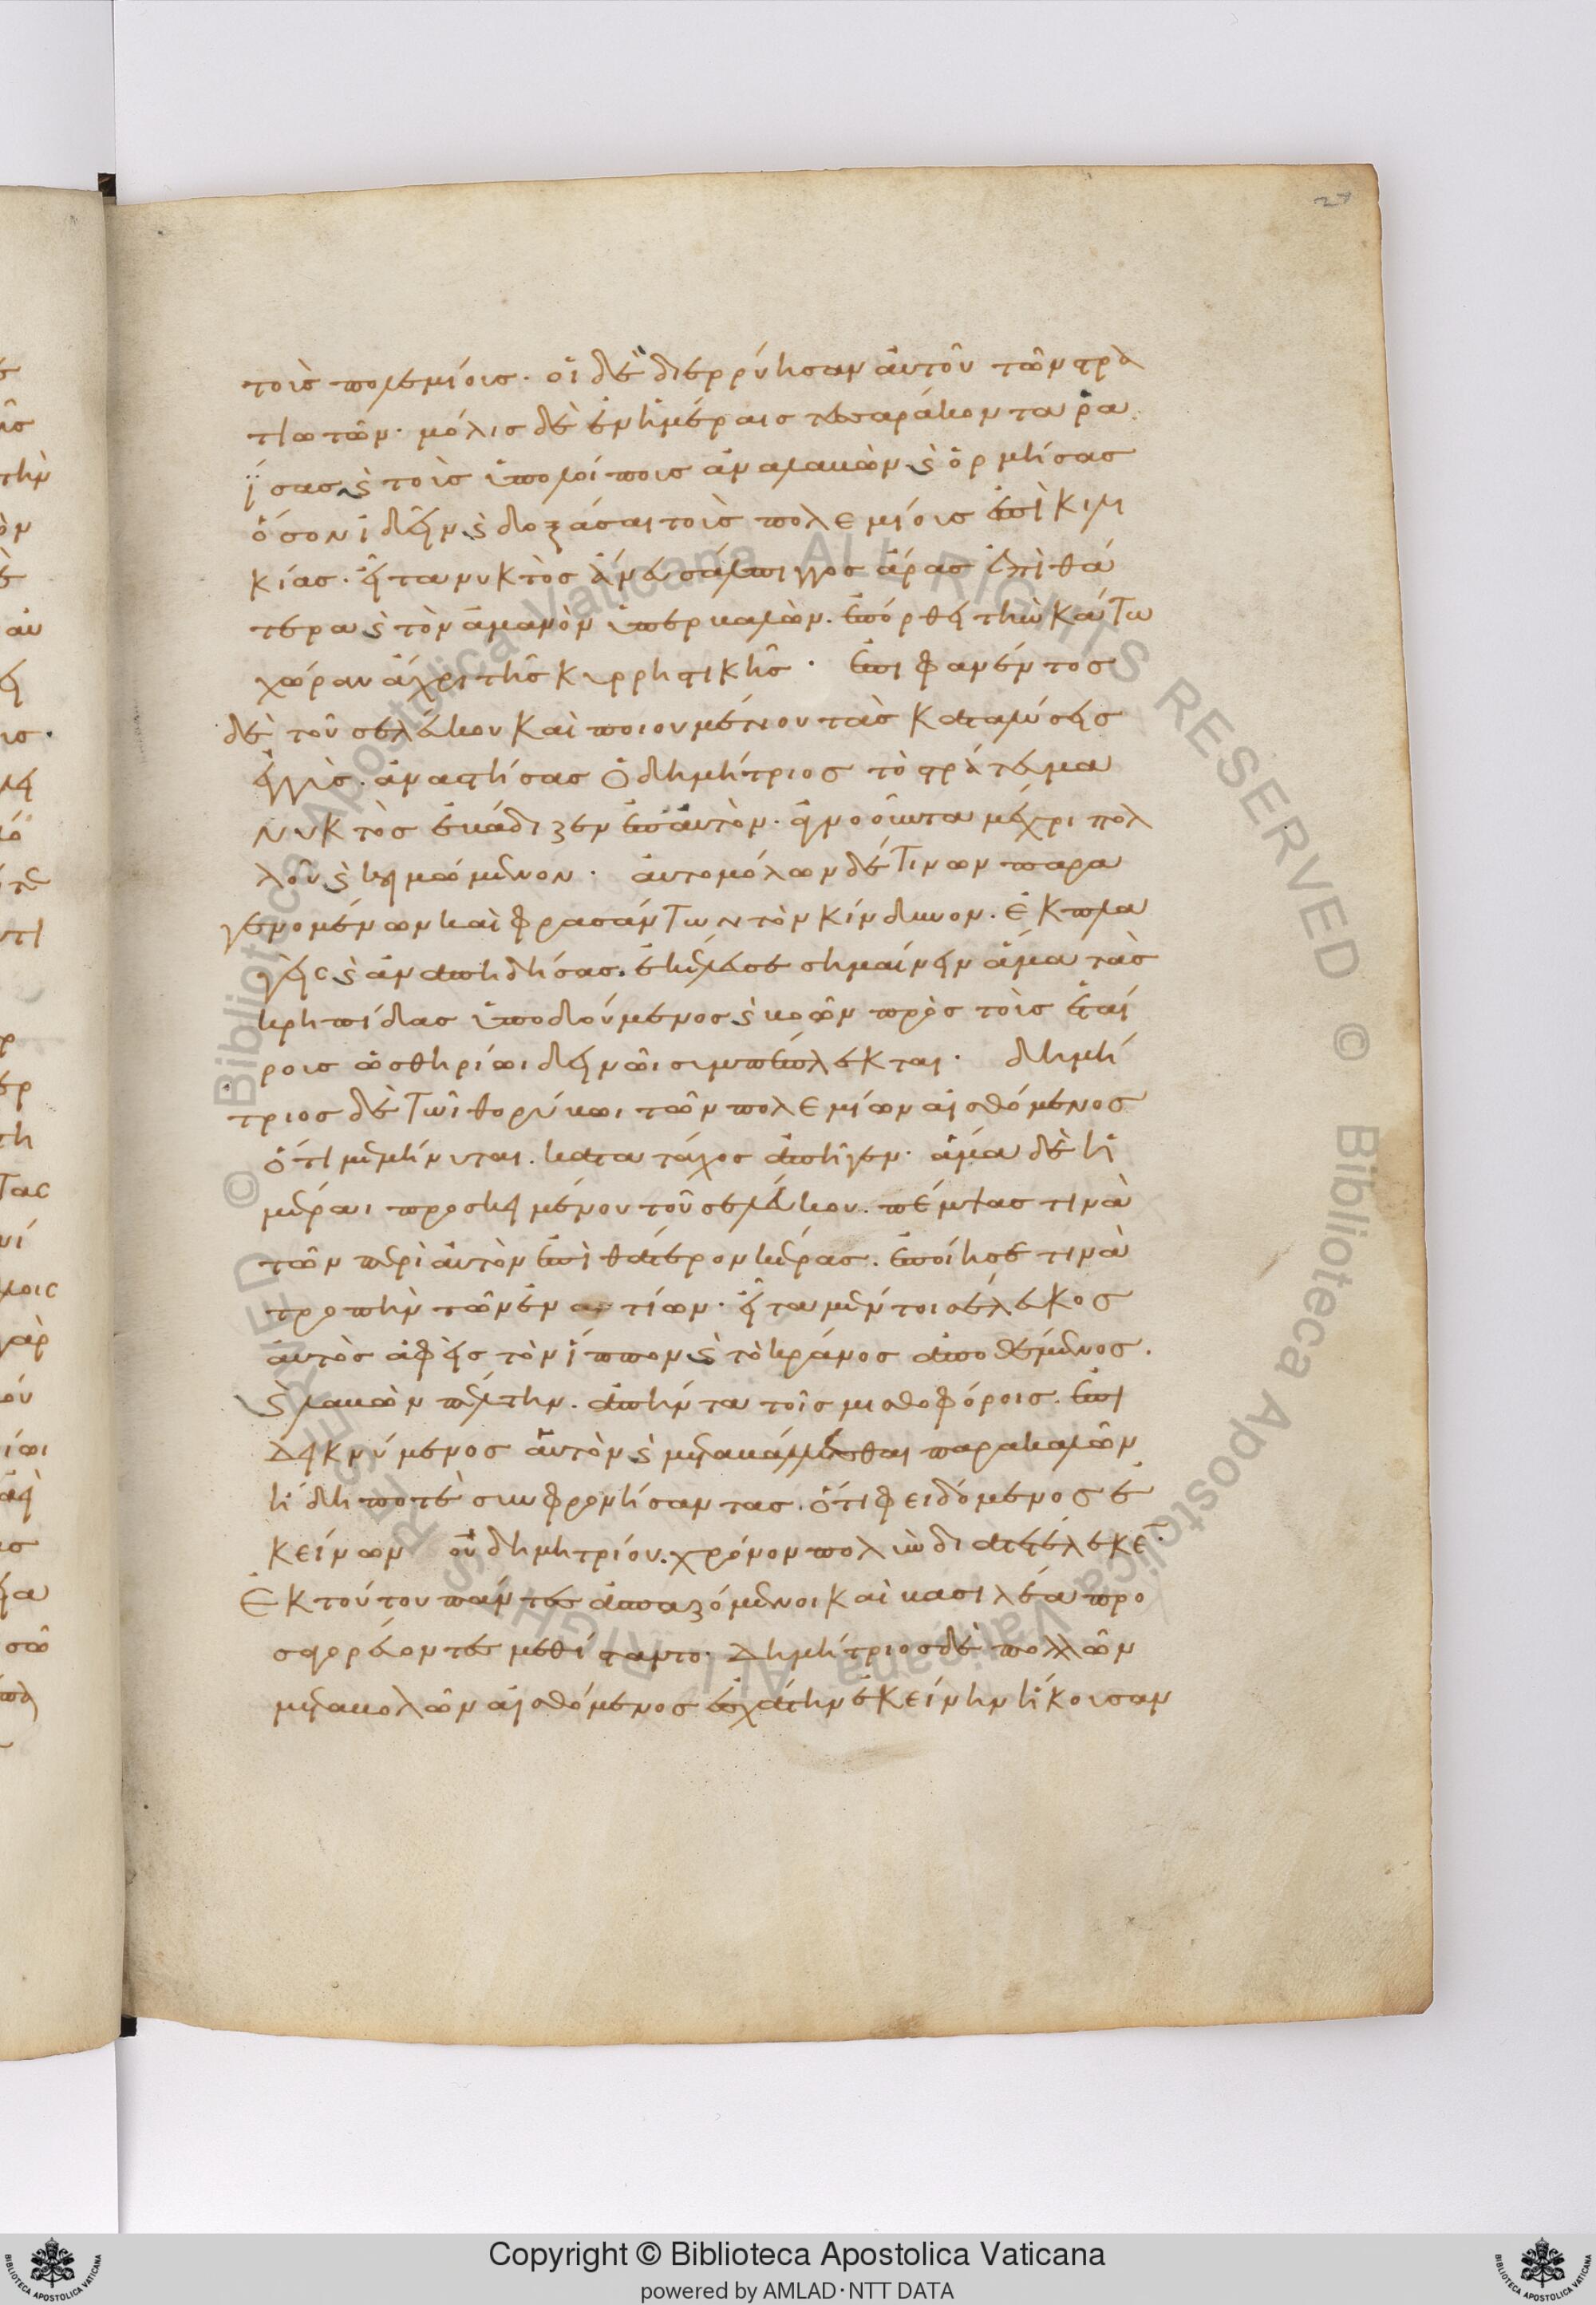 27
τοῖσ πολεμίοισ· οἱ δὲ διερρύησαν ἀυτοῦ τῶν στρα
τιωτῶν· μόλισ δὲ ἐν ἡμέραισ τεσσαράκοντα ῥα
ΐσασ ϗ τοῖσ ὑπολοίποισ ἀναλαβὼν ϗ ὁρμήσασ
ὅσον ἰδεῖν ϗ δοξάσαι τοῖσ πολεμίοισ ἐπὶ κιλι
κίασ· εἶτα νυκτὸσ ἄνευ σάλπιγγοσ ἄρασ ἐπὶ θά
τερα ϗ τὸν ἀμανὸν ὑπερβαλὼν. ἐπόρθει τὴν κάτω
χώραν ἄχρι τῆσ κυρρηστικῆσ· ἐπιφανέντοσ
δὲ τοῦ σελεύκου καὶ ποιουμένου τὰσ καταλύσεισ
ἐγγὺσ. ἀναστήσασ ὁ δημήτριοσ τὸ στράτευμα
νυκτὸσ ἐβάδιζεν ἐπ ἀυτὸν. ἀγνοοῦντα μέχρι πολ
λοῦ ϗ κοιμώμενον· ἀυτομόλων δέ τινων παρα
γενομένων καὶ φρασάντων τὸν κίνδυνον. ἐκπλα
γεὶσ ϗ ἀναπηδήσασ. ἐκέλευσε σημαίνειν ἅμα τὰσ
κρηπίδασ ὑποδούμενοσ ϗ βοῶν πρὸσ τοὶσ ἑταί
ροισ ὡσ θηρίωι δεινῶι συμπέπλεκται· δημή
τριοσ δὲ τῶι θορύβωι τῶν πολεμίων αἰσθόμενοσ
ὅτι μεμήνυται. κατα τάχοσ ἀπῆγεν· ἅμα δὲ ἡ
μέραι προσκειμένου τοῦ σελεύκου. πέμψασ τινὰ
τῶν περὶ ἀυτὸν ἐπὶ θάτερον κέρασ. ἐποίησέ τινὰ
τροπὴν τῶν ἐναντίων· εἶτα μέντοι σέλευκοσ
ἀυτὸσ ἀφεὶσ τὸν ἵππον ϗ τὸ κράνοσ ἀποθέμενοσ.
ϗ λαβὼν πέλτην. ἀπήντα τοῖσ μισθοφόροισ. ἐπι
δεικνύμενοσ ἁυτὸν ϗ μεταβάλλεσθαι παρακαλῶν
ἤδη ποτὲ συμφρονήσαντασ. ὅτι φειδόμενοσ ἐ
κείνων οὐ δημητρίου. χρόνον πολὺν διατετέλεκε·
Ἐκ τούτου πάντεσ ἀσπαζόμενοι καὶ βασιλέα προ
σαγορεύοντεσ μεθίσταντο· Δημήτριοσ δὲ πολλῶν
μεταβολῶν αἰσθόμενοσ ἐσχάτην ἐκείνην ἥκουσαν
Copyright © Biblioteca Apostolica Vaticana
powered by AMLAD·NTT DATA